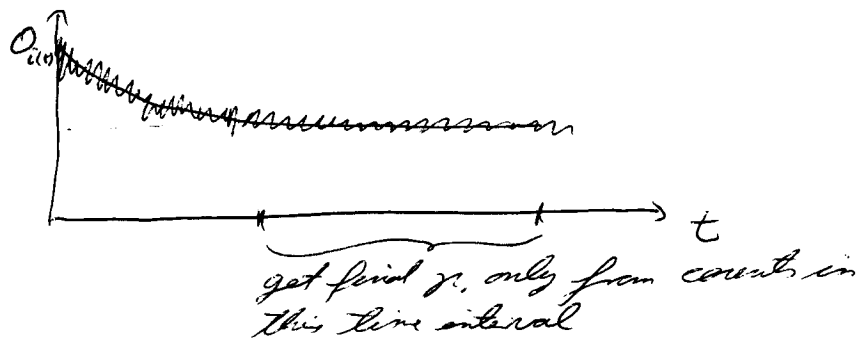 O_i(t)
t
get final γ_i only from counts in
this time interval